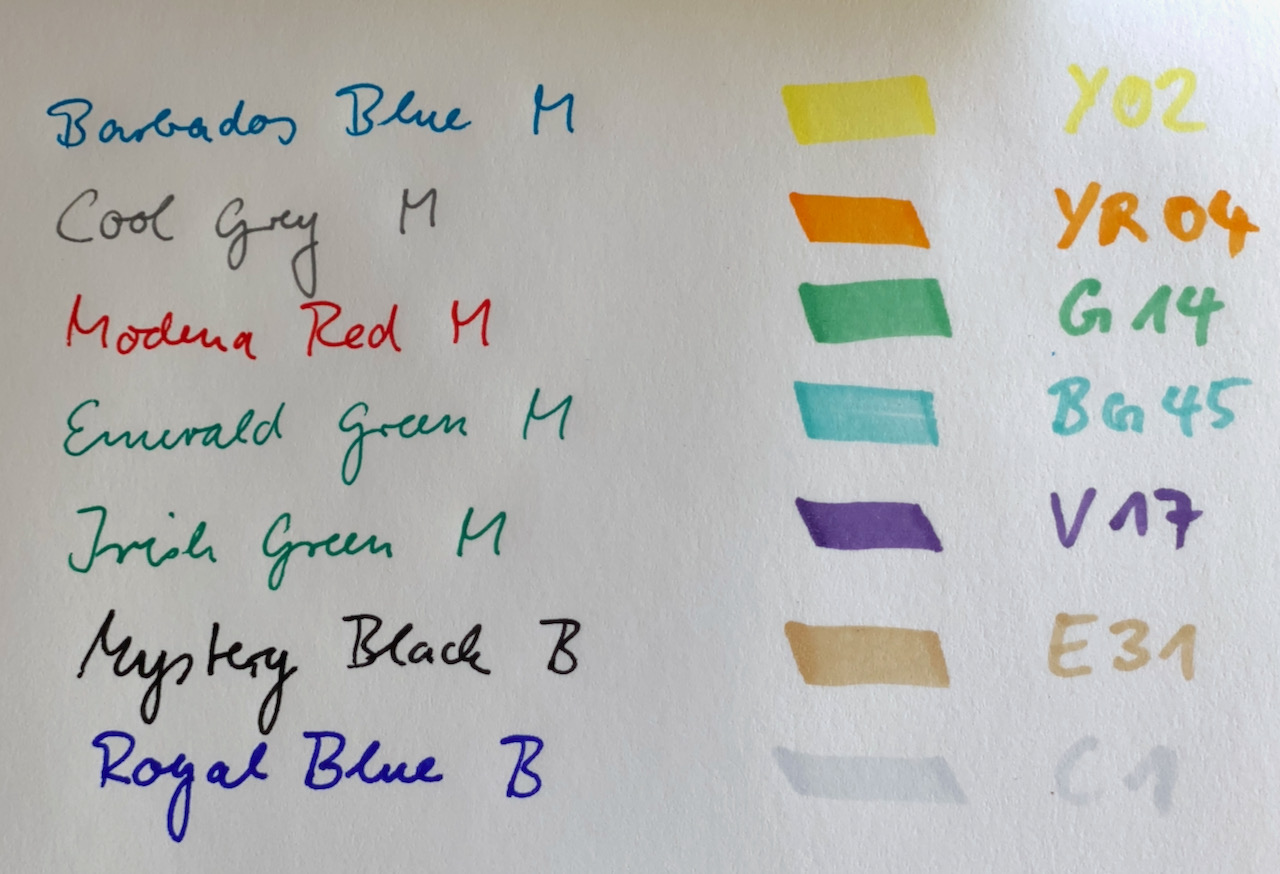 Barbados Blue M Y02
Cool Grey M YR04
Modena Red M G14
Emerald Green M BG45
Irish Green M V17
Mystery Black B E31
Royal Blue B C1